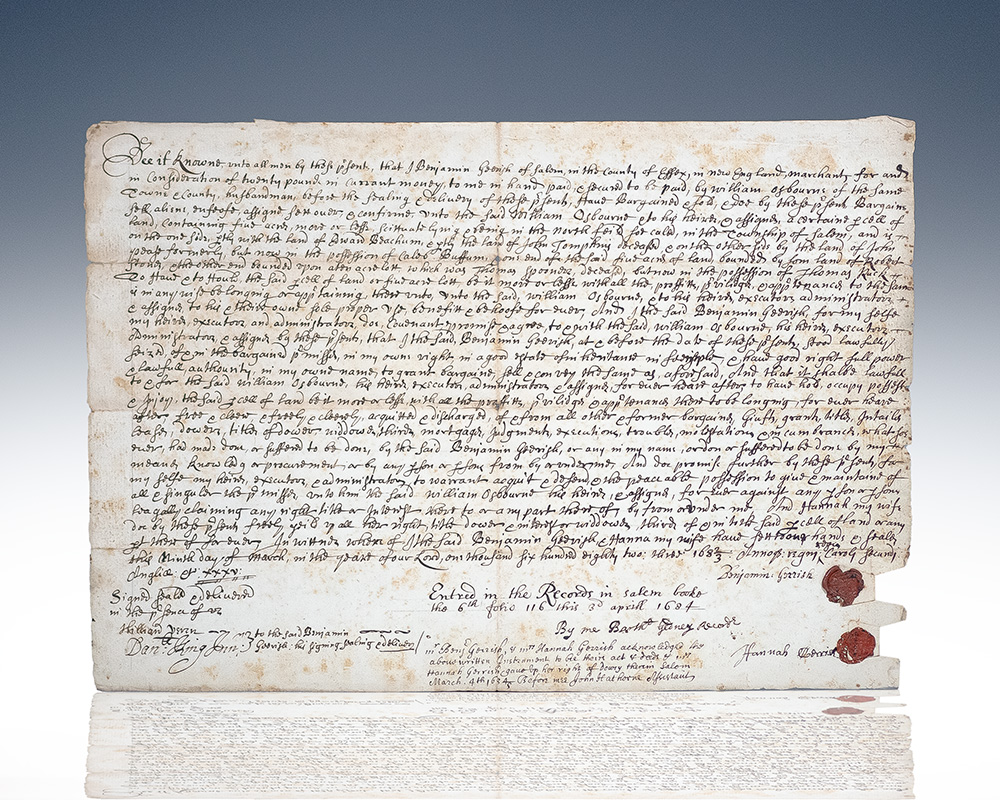 Bee it Knowne vnto all men by these p'sents, that I Benjamin Gerish of Salem, in the County of Essex, in new England, marchant, for and
in Consideration of twenty pound in Currant money, to me in hand paid, & secured to be paid, by William Osbourne of the same
Towne & County, husbandman, before the sealing & delivery of these p'sents, Have Bargained & sold, & doe by these p'sents Bargaine
sell, alien, enfeofe, assigne sett over & confirme vnto the said William Osbourne & to his heires & assignes, a certaine p'cell of
land, containing five acres, more or less, scittuate lying & being in the North feild soe caled, in the Township of Salem, and is
on the one side, with the land of Edward Beacham, & with the land of John Tompkins deceased & on the other side by the land of John
pease formerly, but now in the possession of Caleb Buffum, & on one end of the said five acres of land, bounded by som land of Robert
& the other end bounded vpon a ten acre lott which was Thomas Spooner, deceased, but now in the possession of Thomas Ruck
To Have & to Hould, the said p'cell of land or five acre lott be it more or less, with all the proffitts, p'vilidges & app'tenances to the same
is in any wise be longing or app'taining there vnto, vnto the said, William Osbourne, & to his heires, executors, administrators, &
assignes, to his & theire owne sole proper vse, benefitt & behoofe for ever, And I the said Benjamin Geerish, for my selfe
my heires, executors, and administrators, doe, Covenant promise & agree, to & with the said, William Osbourne, his heires, executors
administrators & assignes, by these p'sents, that I the said, Benjamin Geerish, at & before the date of these p'sents, stood lawfully
seized, of & in the bargained p'misses, in my own right, in a good estate of inheritance in feesimple & have good right full power
& lawfull authority, in my owne name, to grant bargaine, sell & convey the same as aforesaid, And that it shalbe lawfull
to & for the said William Osbourne, his heires, executors, administrators & assignes, for ever heare after, to have hold, occupy possess
& injoy, the said p'cell of land be it more or less, with all the proffitts, p'vilidges & app'tenances there to be longing, for ever heare
after free & clear & freely & cleerely, acquitted & discharged, of & from all other & former bargaines, Giufts, grants, titles, Intailes
Leases, dowers, titles of dower, widdowes thirds, mortgages, Judgments, executions, troubles, molestations & incumbrances, what soe
ever, had, made, don, or suffered to be don, by the said Benjamin Geerish, or any in my name, or don or suffered to be don by my
meanes, knowledg or procurement, or by any p'son or p'sons from by or under me, And doe promise, further by these p'sents, for
my selfe my heires, executors, & administrators, to warrant acquit & defend & the peaceable possession to give & maintaine of
all & singuler the p'misses, vnto him the said William Osbourne his heires, & assignes, for ever against any p'son or p'sons
Leagally claiming any right title or Interest here to or any part there of by from or vnder me, And Hannah my wife
doe by these p'sents freely yeild vp all her right, title dower & interest or widdowes thirds of & in the said p'cell of land or any
pt there of for ever, In wittnes where of I the said Benjamin Geerish & Hanna my wife have sett to our hands & seales
this Ninth day of March, in the yeare of our Lord, on thousand six hundred eighty two: three 168⅔ Annoqe: regni regis Caroly secundi
Angliæ &c XXXV:
Benjamin: Gerrish
Signed seald & delivered
in the p'sence of vs
Hilliard Veren
to the said Benjamin
Dan: King Jun:
Geerish: his signing sealing & deliver
Entred in the Records in Salem booke
the 6th folio 116 this 3d aprill 1684
By me Barth: Gedney Record:
mr: Benj: Gerrish, & mrs Hannah Gerrish acknowledged the
above written Instrument to be theire act & deed &
Hannah Gerrish gave up her right of dowry therein Salem
March. 4th 168¾ Before mee John Hathorne Assistant
Hannah Gerrish